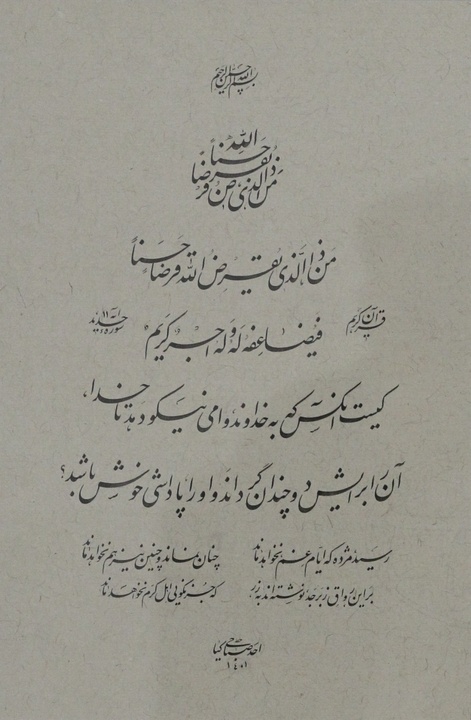 بسم الله الرحمن الرحیم
من ذا الذی یقرض الله قرضا حسنا
من ذا الذی یقرض الله قرضا حسناً
قرآن کریم فیضاعفه له و له اجر کریم آیه ۱۱ سوره حدید
کیست آنکس که به خداوند وامی نیکو دهد تا خدا،
آن را برایش دو چندان گرداند و او را پاداشی خوش باشد؟
رسید مژده که ایام غم نخواهد ماند چنان نماند و چنین نیز هم نخواهد ماند
بر این رواق زبرجد نوشته‌اند به زر که جز نکویی اهل کرم نخواهد ماند
۱۴۰۱